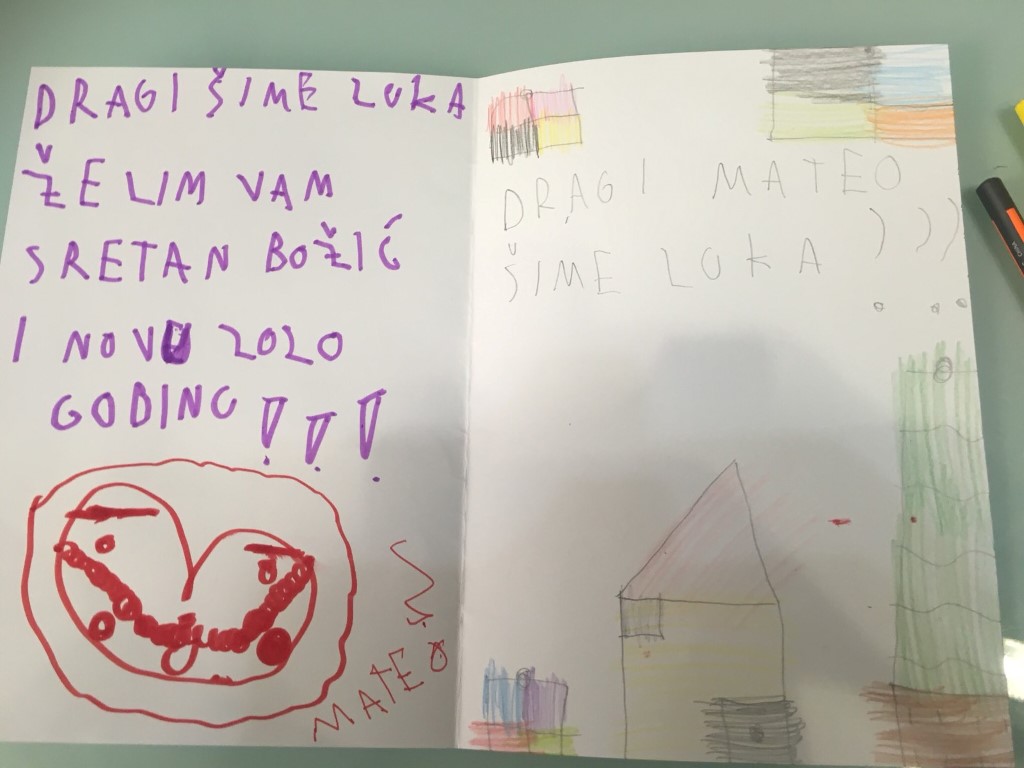 DRAGI ŠIME LUKA
ŽELIM VAM
SRETAN BOŽIĆ
I NOVU 2020
GODINU !!!
MATEO
DRAGI MATEO
ŠIME LUKA